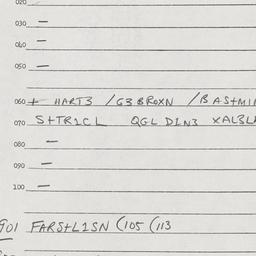 020
030 —
040 —
050 —
060 + HART3 /G3BROXN
070 S+TR1CL QGL D1N3
080 —
090 —
100 —
901 FARS+L1SN (105 (113